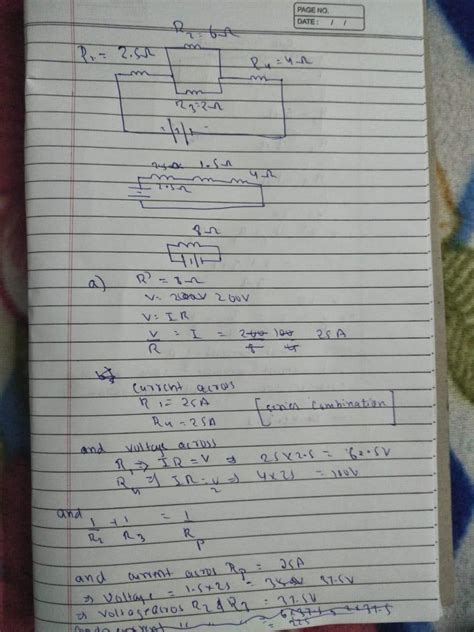 PAGE NO.
DATE : / /
R2 = 6Ω
R1 = 2.5Ω
R4 = 4Ω
R3 = 2Ω
1.5Ω
4Ω
2.5Ω
8Ω
a) R = 8Ω
V = 200V
V = IR
V/R = I = 25A
b) current across
R1 = 25A
R4 = 25A [series combination]
and voltage across
R1 ⇒ IR = V ⇒ 25 × 2.5 = 62.5V
R4 ⇒ IR = V ⇒ 4 × 25 = 100V
and 1/R2 + 1/R3 = 1/Rp
and current across Rp = 25A
⇒ voltage = 1.5 × 25 = 37.5V
⇒ voltage across R2 & R3 = 37.5V